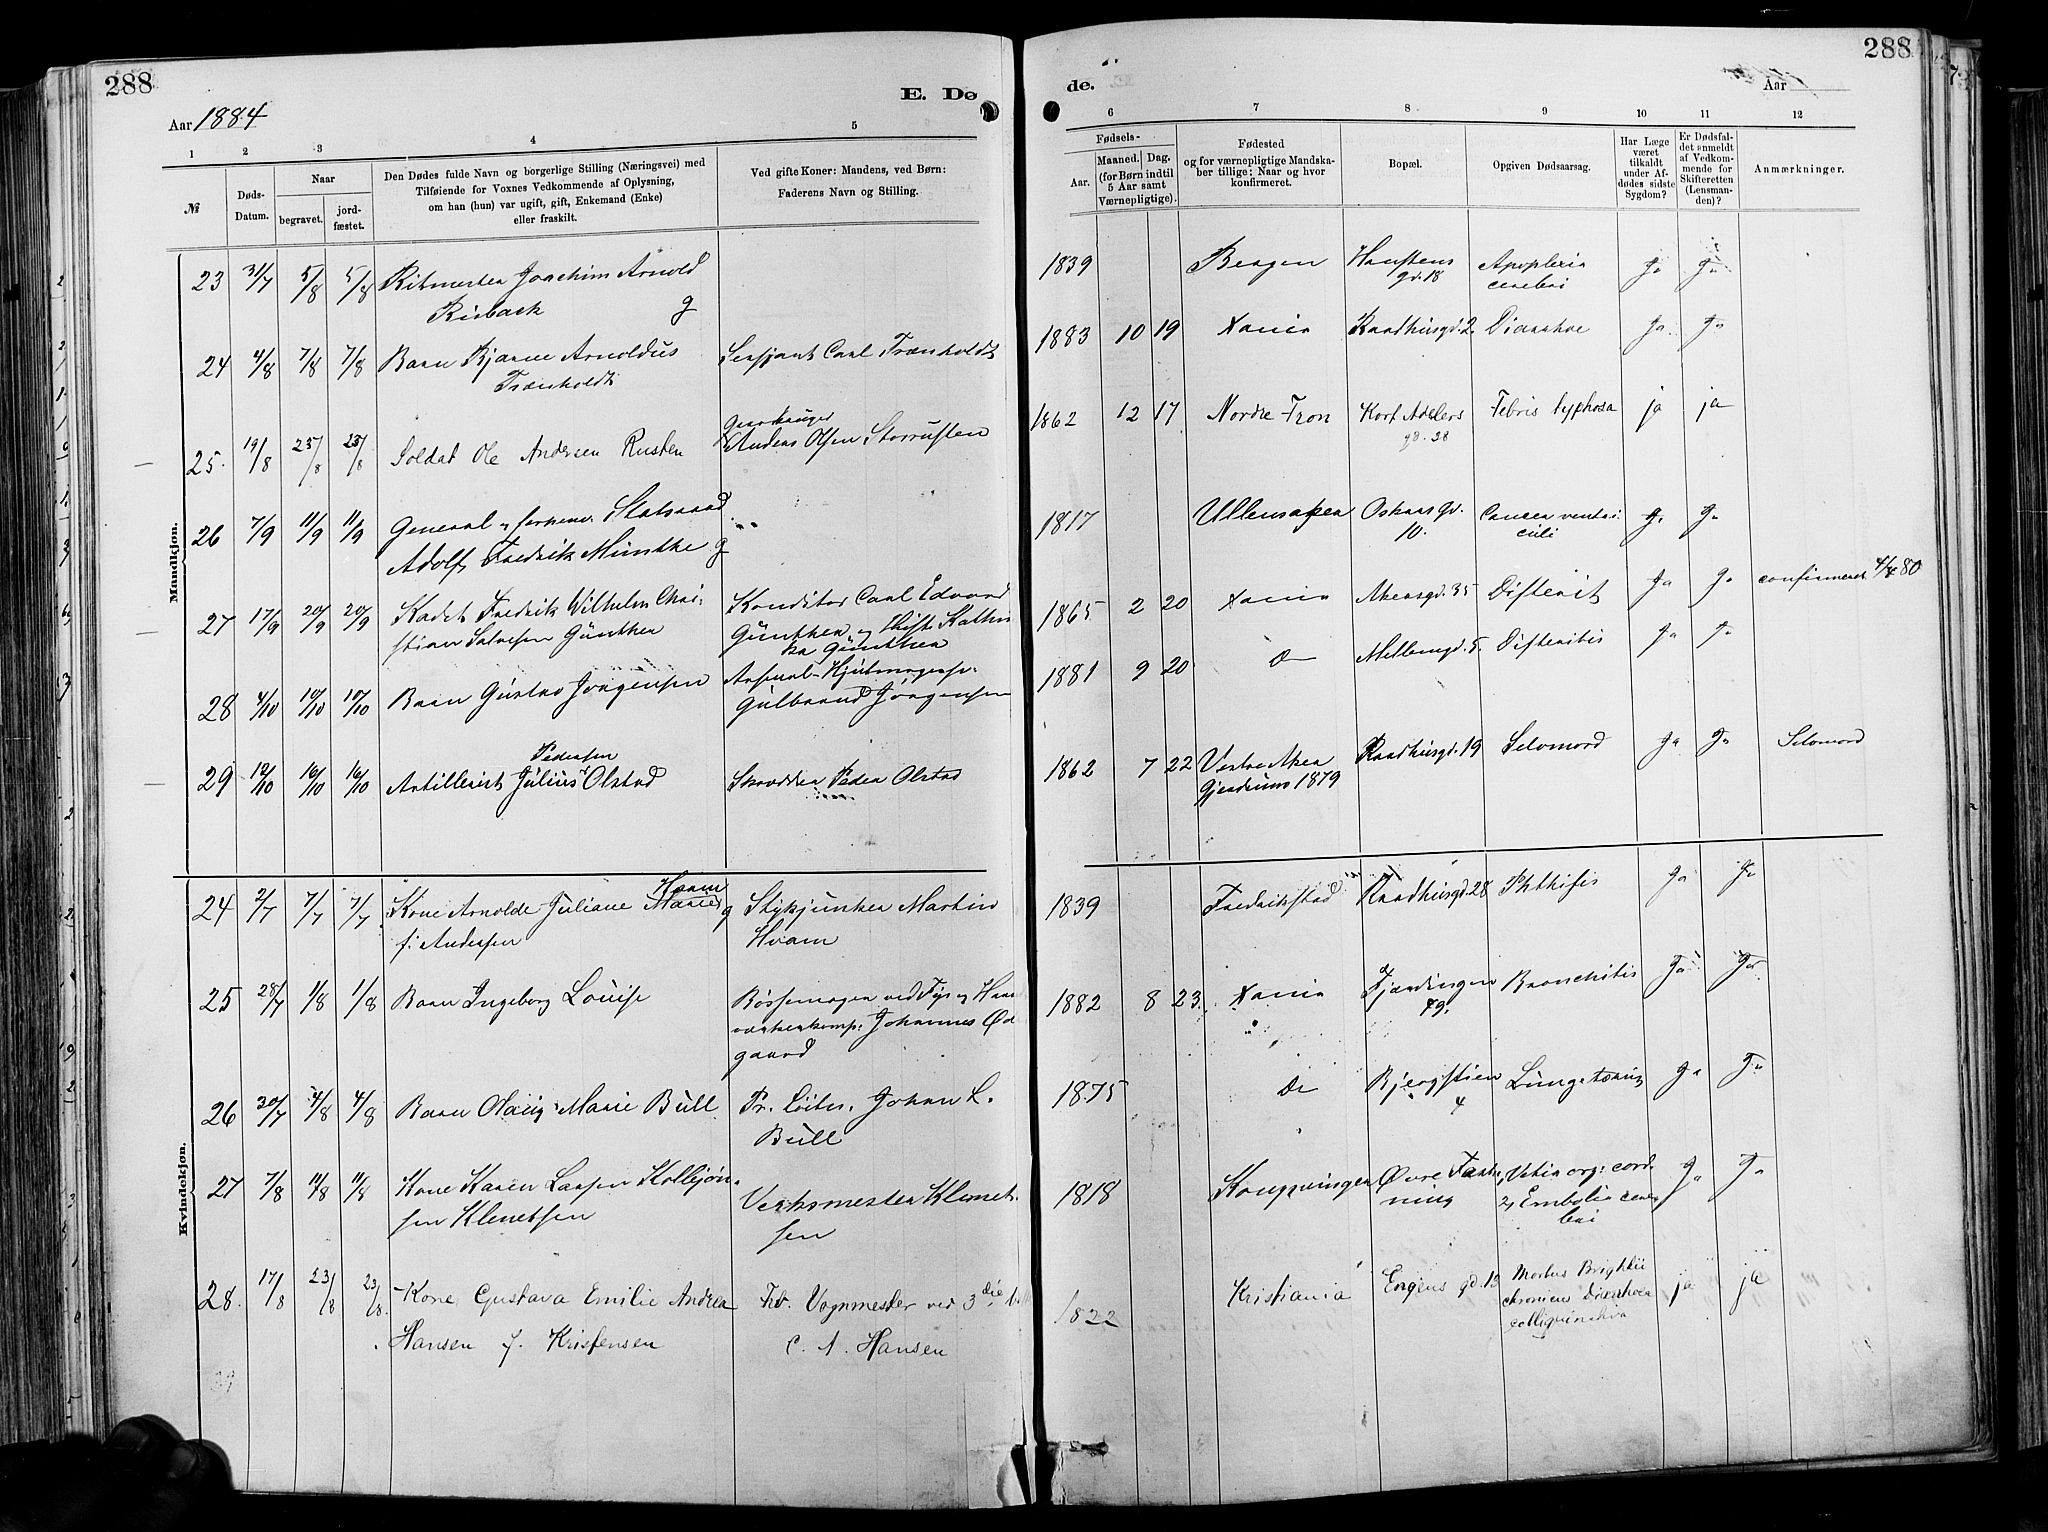 288
E. Dø
Aar 1884
1 2 3 4 5
№
Døds-
Datum.
Naar
begravet.
jord-
fæstet.
Den Dødes fulde Navn og borgerlige Stilling (Næringsvei) med
Tilføiende for Voxnes Vedkommende af Oplysning,
om han (hun) var ugift, gift, Enkemand (Enke)
eller fraskilt.
Ved gifte Koner: Mandens, ved Børn:
Faderens Navn og Stilling.
Mandkjøn.
23 31/7 5/8 5/8 Ritmester Joachim Arnold
g
24 4/8 7/8 7/8 Barn Bjarne Arnoldus Sersjant Carl Trænholdt
Trænholdt
Gaardbruger
25. 19/8 23/8 23/8 Soldat Ole Andersen Rusten Anders Olsen Storrusten
26 7/9 11/9 11/9 General Statsraad
Adolf Fredrik Munthe g
27 17/9 20/9 20/9 Kadet Fredrik Wilhelm Chri- Konditor Carl Edvard
stian Salvesen Günther Günther og
Günther
28 4/10 10/10 10/10 Barn Gustav Jørgensen
Gulbrand Jørgensen
Pedersen
29 12/10 16/10 16/10 Artillerist Julius Olstad Skrædder Peder Olstad
Kvindekjøn.
Hvam
24 2/7 7/7 7/7 Kone Arnolde Juliane Marie g Stykjunker Martin
f. Andersen Hvam
25 28/7 1/8 1/8 Barn Ingeborg Louise Bøssemager ved Fys og Haand
værkerkomp. Johannes Ød
gaard
26 30/7 4/8 4/8 Barn Olaug Marie Bull Pr. Løitn. Johan L.
Bull
27 7/8 11/8 11/8 Kone Karen Larsen Kolbjøn-
sen Klemetsen Verksmester Klemet-
sen
28. 17/8 23/8 23/8. Kone Gustava Emilie Andrea Fhv. Vognmester ved 3die
Hansen f. Kristensen C. A. Hansen
288
de.
Aar
6 7 8 9 10 11 12
Fødsels-
Aar.
Maaned. Dag.
(for Børn indtil
5 Aar samt
Værnepligtige).
Fødested
og for værnepligtige Mandska-
ber tillige: Naar og hvor
konfirmeret.
Bopæl.
Opgiven Dødsaarsag.
Har Læge
været
tilkaldt
under Af-
dødes sidste
Sygdom?
Er Dødsfal-
det anmeldt
af Vedkom-
mende for
Skifteretten
(Lensman-
den)?
Anmærkninger.
1839 Bergen Hanstens Apoplexia Ja Ja
gd. 18 cerebri
1883 10 19 Xania Raadhusgd. 2 Diarrhoe Ja Ja
1862 12 17 Nordre Fron Kort Adelers Febris typhosa ja ja
gd. 38
1817 Ullensaker Oskarsgd. Cancer ventri- Ja Ja
10. culi
1865 2 20 Xania Akersgd. 35 Difterit Ja Ja confirmeret 4/4 80
1881 9 20 Do Møllergd. 5. Difteritis Ja Ja
1862 7 22 Vestre Aker Raadhusgd. 19 Selvmord Ja Ja Selvmord
Gjerdrum 1879
1839 Fredrikstad Raadhusgd. 28 Phthisis Ja Ja
1882 8 23. Xania Fjerdingen Bronchitis Ja Ja
49.
1875 Do Bjergstien Lungetæring Ja Ja
4
1818 Kongsvinger Øvre Fæst- Vitia org: cord. Ja Ja
ning 2, Embolia cere-
bri
1822 Kristiania Engens gd. 13 Morbus Brightii ja ja
chronicus Diarrhoea
colliquativa